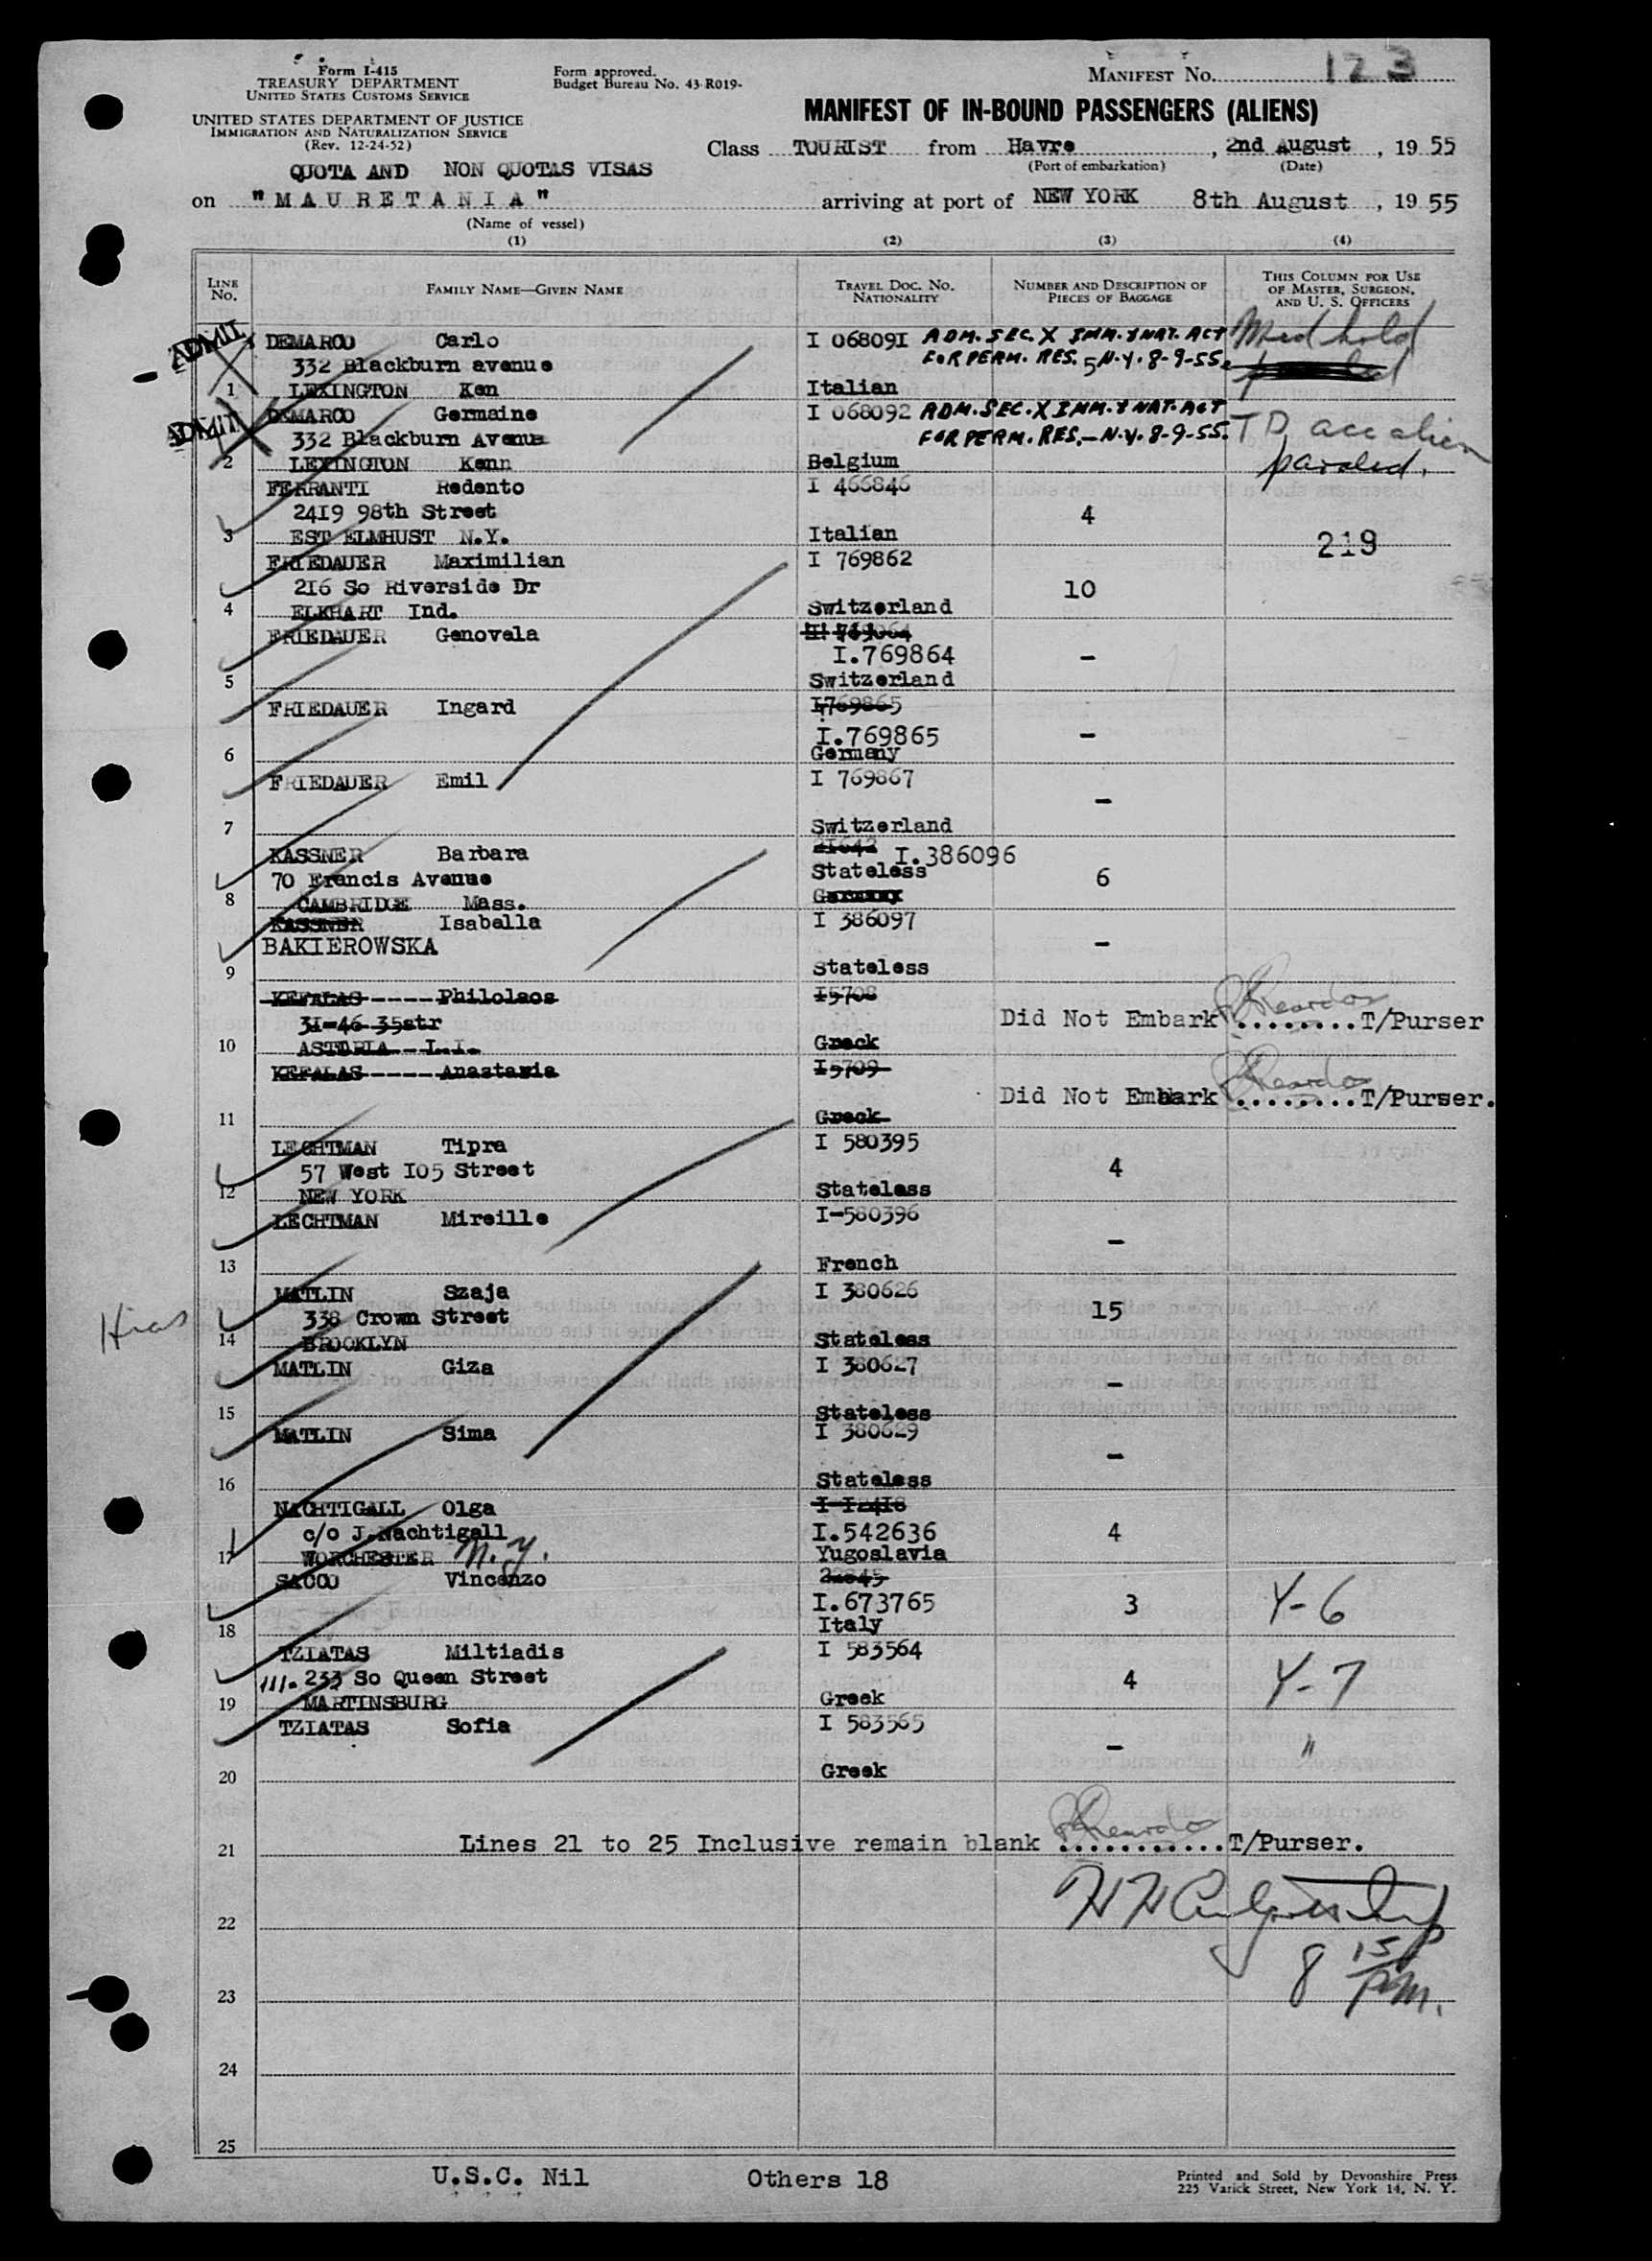 Form I-415
TREASURY DEPARTMENT
UNITED STATES CUSTOMS SERVICE
UNITED STATES DEPARTMENT OF JUSTICE
IMMIGRATION AND NATURALIZATION SERVICE
(Rev. 12-24-52)
Form approved.
Budget Bureau No. 43-R019-
MANIFEST No. 123
MANIFEST OF IN-BOUND PASSENGERS (ALIENS)
Class TOURIST from Havre, 2nd August, 19 55
(Port of embarkation) (Date)
QUOTA AND NON QUOTAS VISAS
on "MAURETANIA" arriving at port of NEW YORK 8th August, 19 55
(Name of vessel)
(1) (2) (3) (4)
LINE No. FAMILY NAME—GIVEN NAME TRAVEL DOC. NO. NATIONALITY NUMBER AND DESCRIPTION OF PIECES OF BAGGAGE THIS COLUMN FOR USE OF MASTER, SURGEON, AND U. S. OFFICERS
ADMIT DEMARCO Carlo I 068091 ADM. SEC. X IMM. & NAT. ACT Med hold
332 Blackburn avenue FOR PERM. RES. 5 N.Y. 8-9-55. paroled
1 LEXINGTON Ken Italian
ADMIT DEMARCO Germaine I 068092 ADM. SEC. X IMM. & NAT. ACT
332 Blackburn Avenue FOR PERM. RES.—N.Y. 8-9-55. TD acc alien
2 LEXINGTON Kenn Belgium paroled.
FERRANTI Redento I 466846
2419 98th Street 4
3 EST ELMHUST N.Y. Italian 219
FRIEDAUER Maximilian I 769862
216 So Riverside Dr 10
4 ELKHART Ind. Switzerland
FRIEDAUER Genovela
I.769864 -
5 Switzerland
FRIEDAUER Ingard I769865
I.769865 -
6 Germany
FRIEDAUER Emil I 769867
-
7 Switzerland
KASSNER Barbara 21642 I.386096
70 Francis Avenue Stateless 6
8 CAMBRIDGE Mass. Germany
KASSNER Isabella I 386097
BAKIEROWSKA -
9 Stateless
KEFALAS ---- Philolaos I5708
31-46 35str Did Not Embark ........T/Purser
10 ASTORIA -- L.I. Greek
KEFALAS ---- Anastasia I5709
Did Not Embark ........T/Purser.
11 Greek
LECHTMAN Tipra I 580395
57 West I05 Street 4
12 NEW YORK Stateless
LECHTMAN Mireille I-580396
-
13 French
MATLIN Szaja I 380626
Hias 338 Crown Street 15
14 BROOKLYN Stateless
MATLIN Giza I 380627
-
15 Stateless
MATLIN Sima I 380629
-
16 Stateless
NACHTIGALL Olga I I2418
c/o J.Nachtigall I.542636 4
17 WORCHESTER N.Y. Yugoslavia
SACCO Vincenzo
I.673765 3 Y-6
18 Italy
TZIATAS Miltiadis I 583564
111. 233 So Queen Street 4 Y-7
19 MARTINSBURG Greek
TZIATAS Sofia I 583565
- "
20 Greek
21 Lines 21 to 25 Inclusive remain blank ............T/Purser.
22
8 15 PM.
23
24
25
U.S.C. Nil Others 18
Printed and Sold by Devonshire Press
225 Varick Street, New York 14, N. Y.